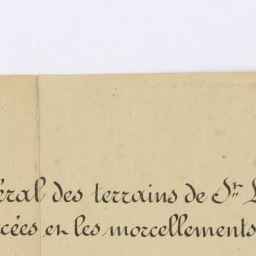 éral des terrains de Sr. L
cées en les morcellements